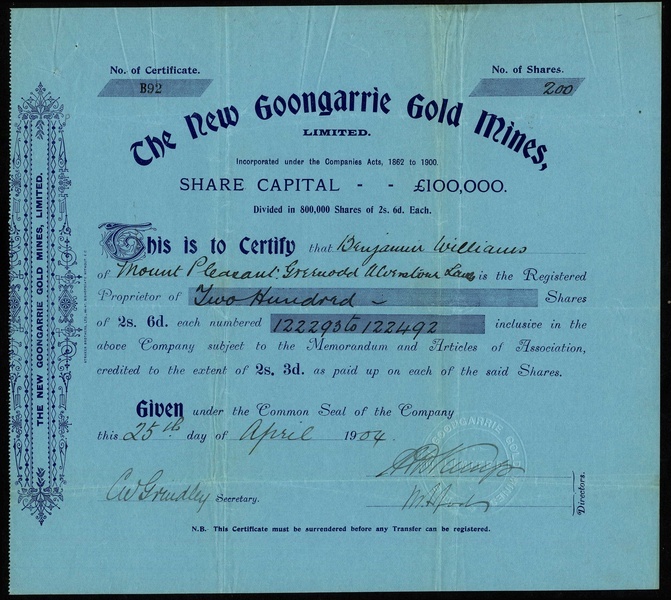 No. of Certificate.
B92
No. of Shares.
200
The New Goongarrie Gold Mines,
LIMITED.
Incorporated under the Companies Acts, 1862 to 1900.
SHARE CAPITAL - - £100,000.
Divided in 800,000 Shares of 2s. 6d. Each.
This is to Certify that Benjamin Williams
of Mount Pleasant Ulverstone is the Registered
Proprietor of Two Hundred — Shares
of 2s. 6d. each numbered 122293 to 122492 inclusive in the
above Company subject to the Memorandum and Articles of Association,
credited to the extent of 2s. 3d. as paid up on each of the said Shares.
Given under the Common Seal of the Company
this 25th day of April 1904.
Secretary.
Directors.
N.B- This Certificate must be surrendered before any Transfer can be registered.
THE NEW GOONGARRIE GOLD MINES, LIMITED.